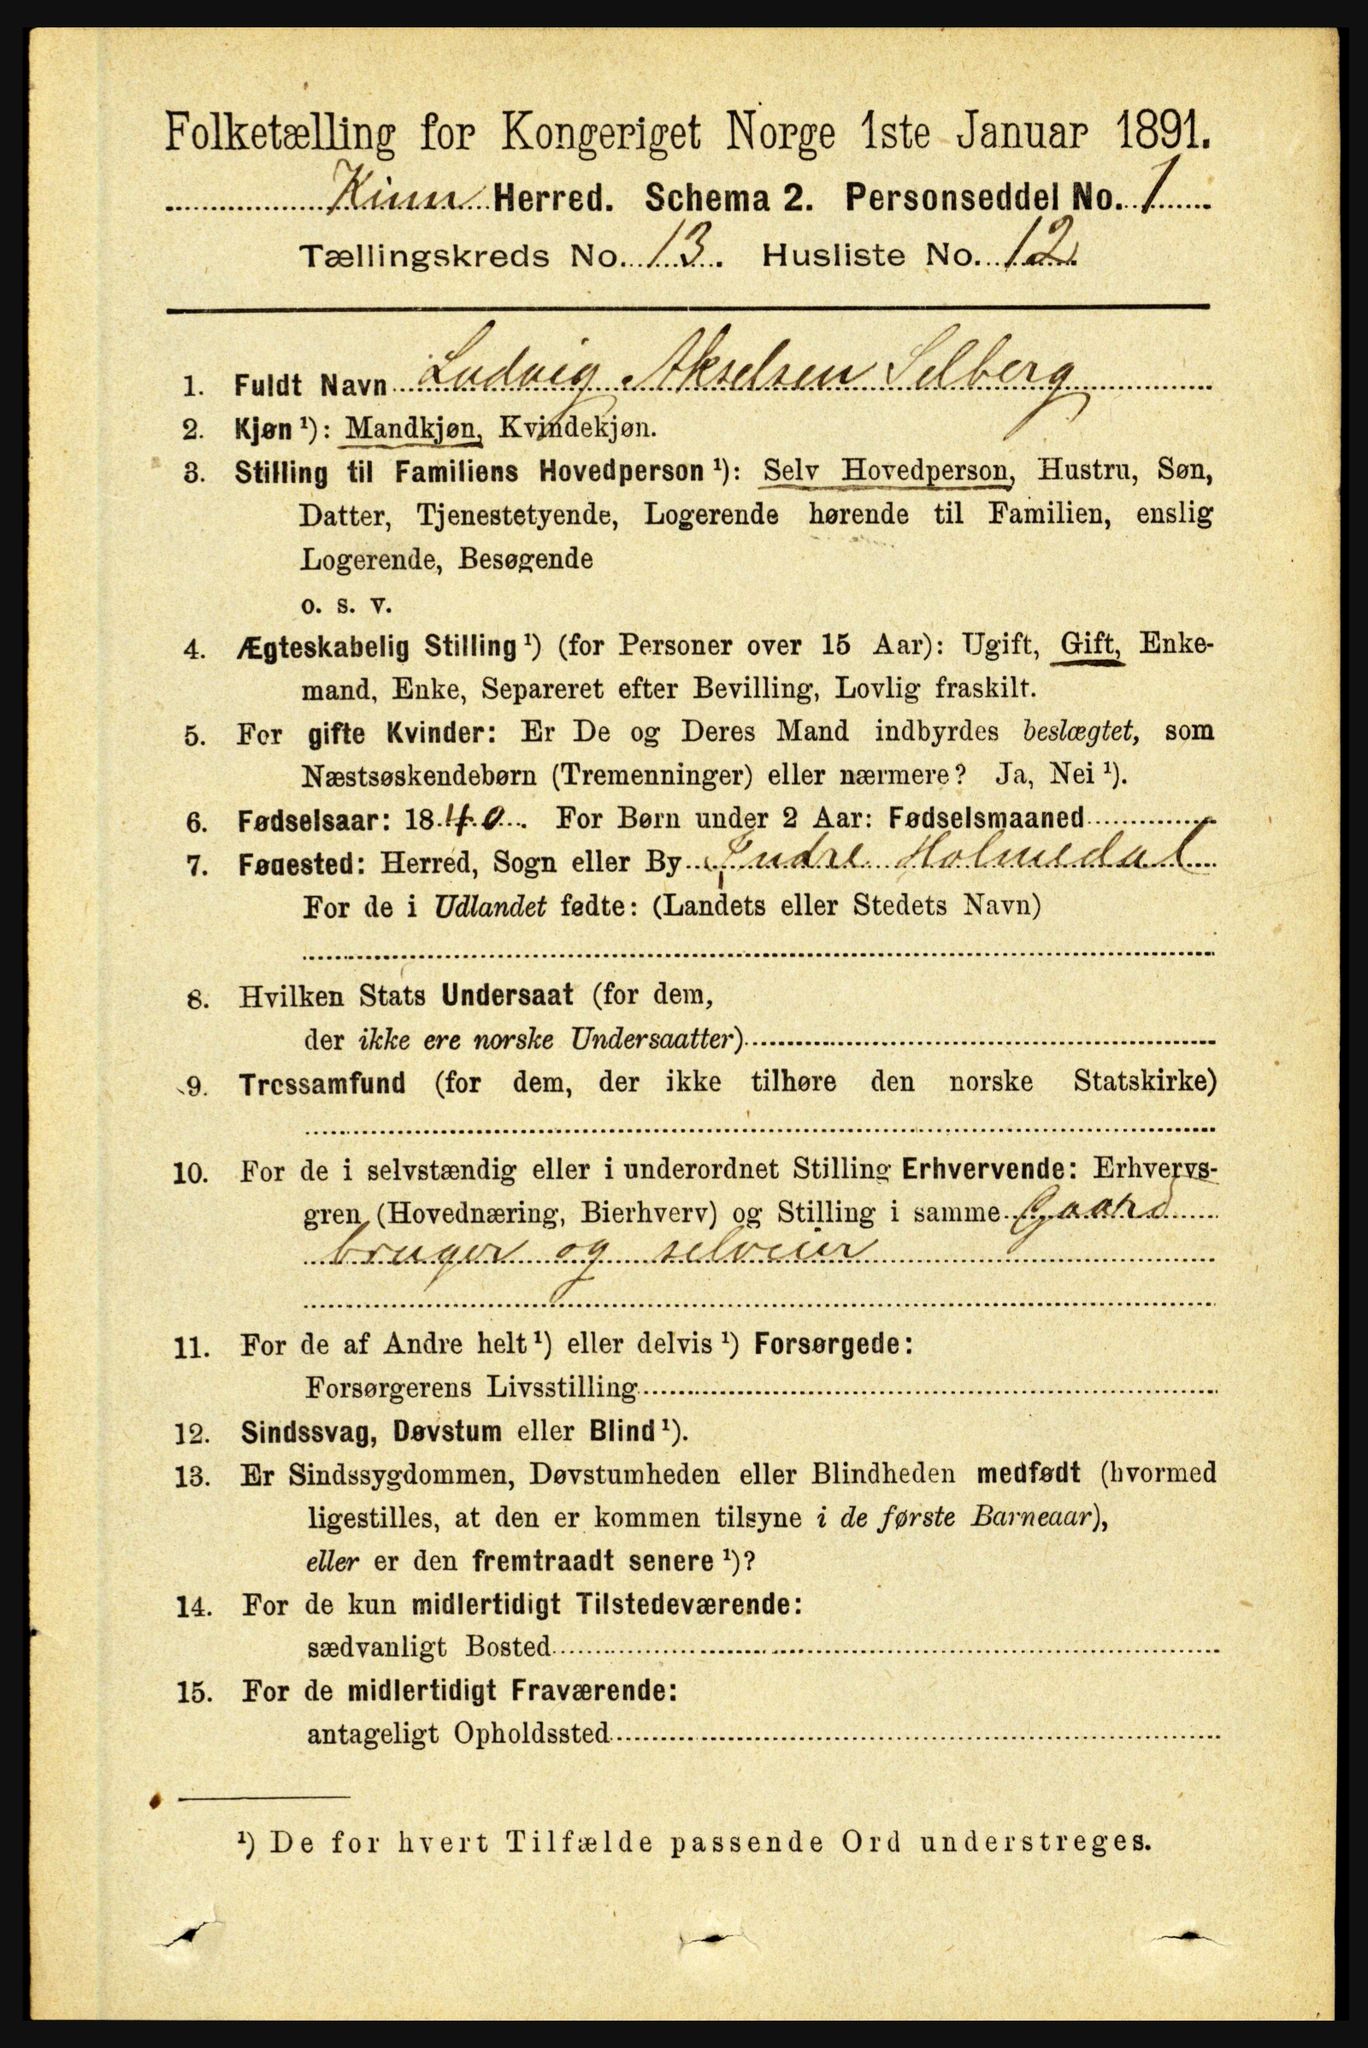 Folketælling for Kongeriget Norge 1ste Januar 1891.
Kinn Herred. Schema 2. Personseddel No. 1
Tællingskreds No. 13. Husliste No. 12.
1. Fuldt Navn Ludvig Akselsen Selberg
2. Kjøn ¹): Mandkjøn, Kvindekjøn.
3. Stilling til Familiens Hovedperson ¹): Selv Hovedperson, Hustru, Søn,
Datter, Tjenestetyende, Logerende hørende til Familien, enslig
Logerende, Besøgende
o. s. v.
4. Ægteskabelig Stilling ¹) (for Personer over 15 Aar): Ugift, Gift, Enke-
mand, Enke, Separeret efter Bevilling, Lovlig fraskilt.
5. For gifte Kvinder: Er De og Deres Mand indbyrdes beslægtet, som
Næstsøskendebørn (Tremenninger) eller nærmere? Ja, Nei ¹).
6. Fødselsaar: 1840. For Børn under 2 Aar: Fødselsmaaned
7. Fødested: Herred, Sogn eller By Indre Holmedal
For de i Udlandet fødte: (Landets eller Stedets Navn)
8. Hvilken Stats Undersaat (for dem,
der ikke ere norske Undersaatter)
9. Trossamfund (for dem, der ikke tilhøre den norske Statskirke)
10. For de i selvstændig eller i underordnet Stilling Erhvervende: Erhvervs-
gren (Hovednæring, Bierhverv) og Stilling i samme Gaard
bruger og selveier
11. For de af Andre helt ¹) eller delvis ¹) Forsørgede:
Forsørgerens Livsstilling
12. Sindssvag, Døvstum eller Blind ¹).
13. Er Sindssygdommen, Døvstumheden eller Blindheden medfødt (hvormed
ligestilles, at den er kommen tilsyne i de første Barneaar),
eller er den fremtraadt senere ¹)?
14. For de kun midlertidigt Tilstedeværende:
sædvanligt Bosted
15. For de midlertidigt Fraværende:
antageligt Opholdssted
¹) De for hvert Tilfælde passende Ord understreges.